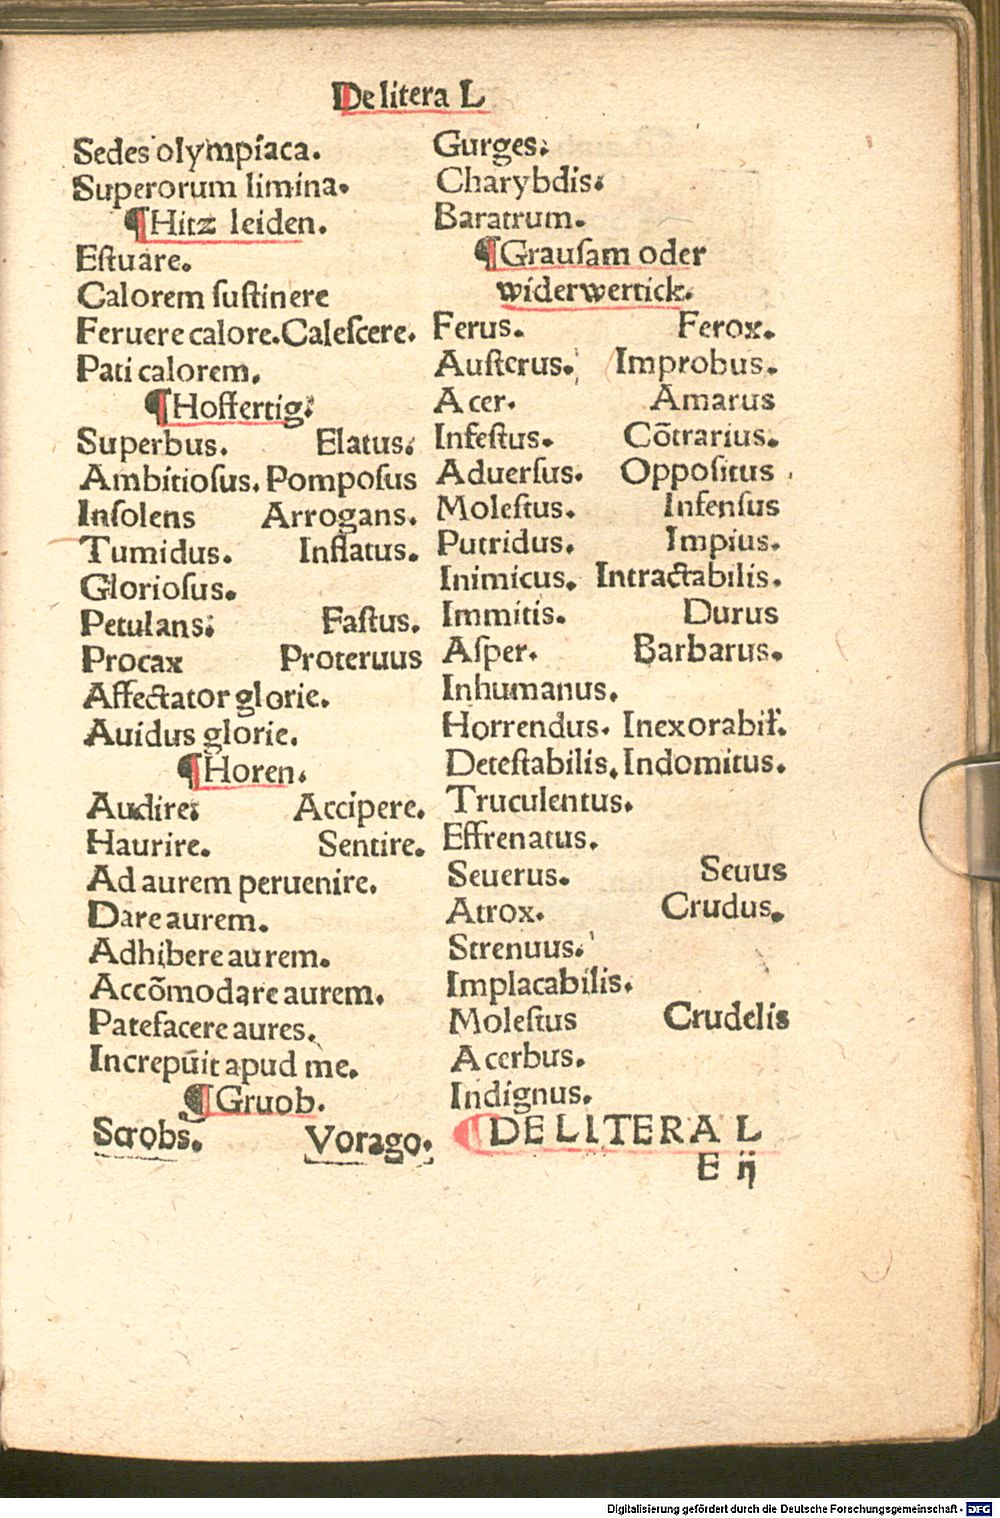 De litera L
Sedes olympiaca.
Superorum limina.
¶Hitz leiden.
Eſtuare.
Calorem ſuſtinere
Feruere calore. Caleſcere.
Pati calorem.
¶Hoffertig:
Superbus. Elatus:
Ambitioſus. Pompoſus
Inſolens Arrogans.
Tumidus. Inflatus.
Glorioſus.
Petulans: Faſtus.
Procax Proteruus
Affectator glorie.
Auidus glorie.
¶Horen.
Audire: Accipere.
Haurire. Sentire.
Ad aurem peruenire.
Dare aurem.
Adhibere aurem.
Accõmodare aurem.
Patefacere aures.
Increpũit apud me.
¶Gruob.
Scrobs. Vorago.
Gurges:
Charybdis:
Baratrum.
¶Grauſam oder
widerwertick.
Ferus. Ferox.
Auſterus. Improbus.
Acer. Amarus
Infeſtus. Cõtrarius.
Aduerſus. Oppoſitus
Moleſtus. Infenſus
Putridus. Impius.
Inimicus. Intractabilis.
Immitis. Durus
Aſper. Barbarus.
Inhumanus.
Horrendus. Inexorabił.
Deteſtabilis. Indomitus.
Truculentus.
Effrenatus.
Seuerus. Seuus
Atrox. Crudus.
Strenuus.
Implacabilis.
Moleſtus Crudelis
Acerbus.
Indignus.
¶DE LITERA L
E ij
Digitalisierung gefördert durch die Deutsche Forschungsgemeinschaft - DFG